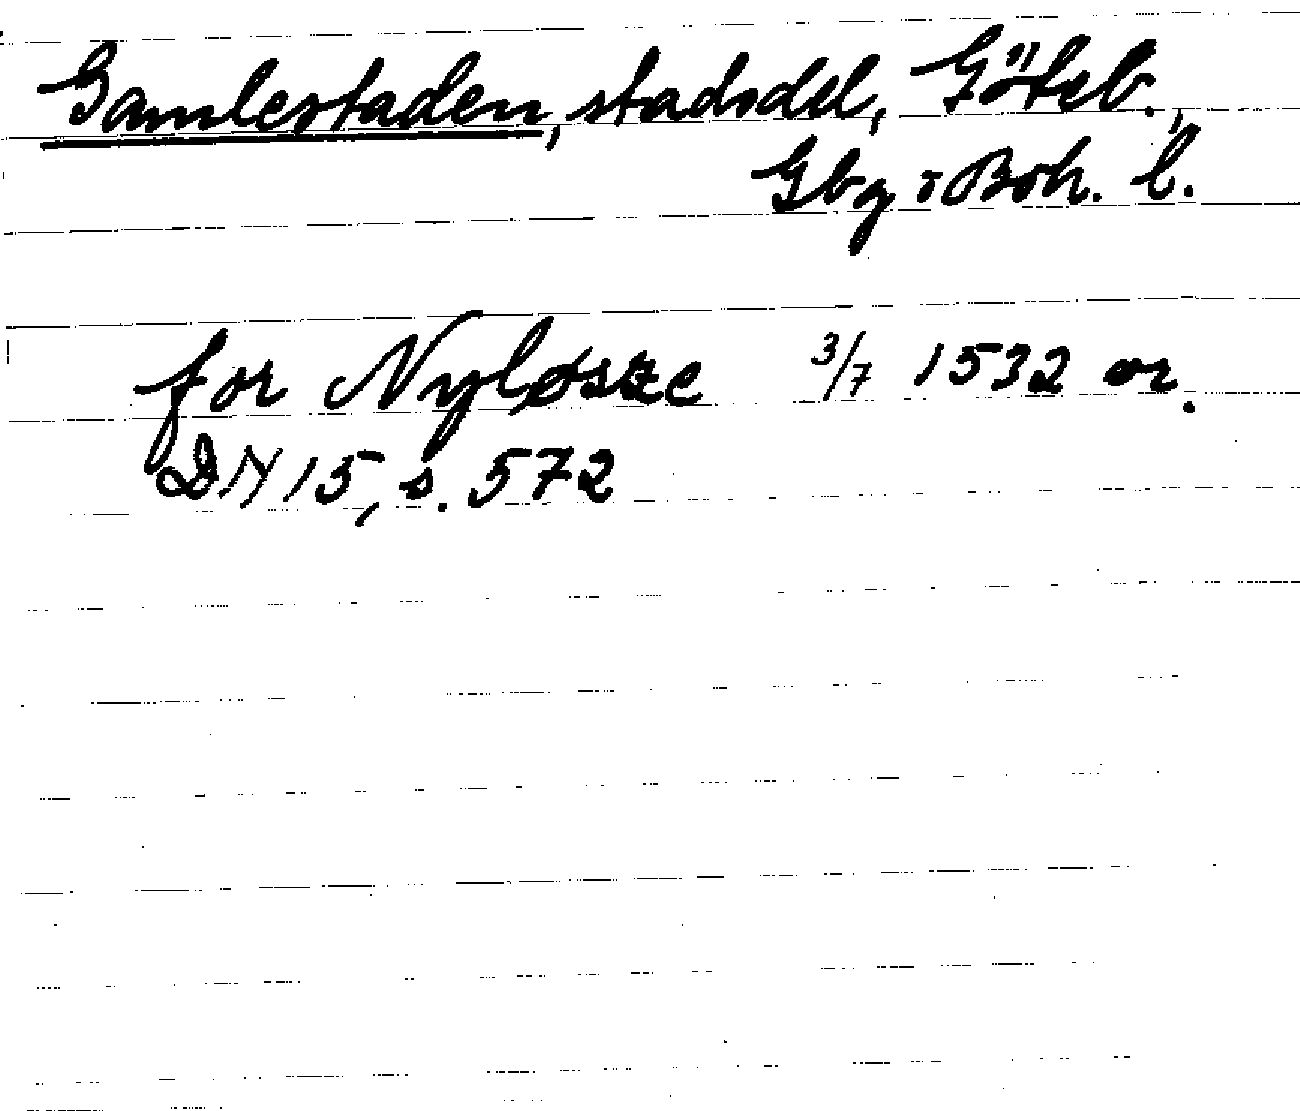 Gamlestaden, stadsdel, Göteb.,
Gbg o Boh. l.
for Nyløsze 3/7 1532 or.
DN 15, s. 572